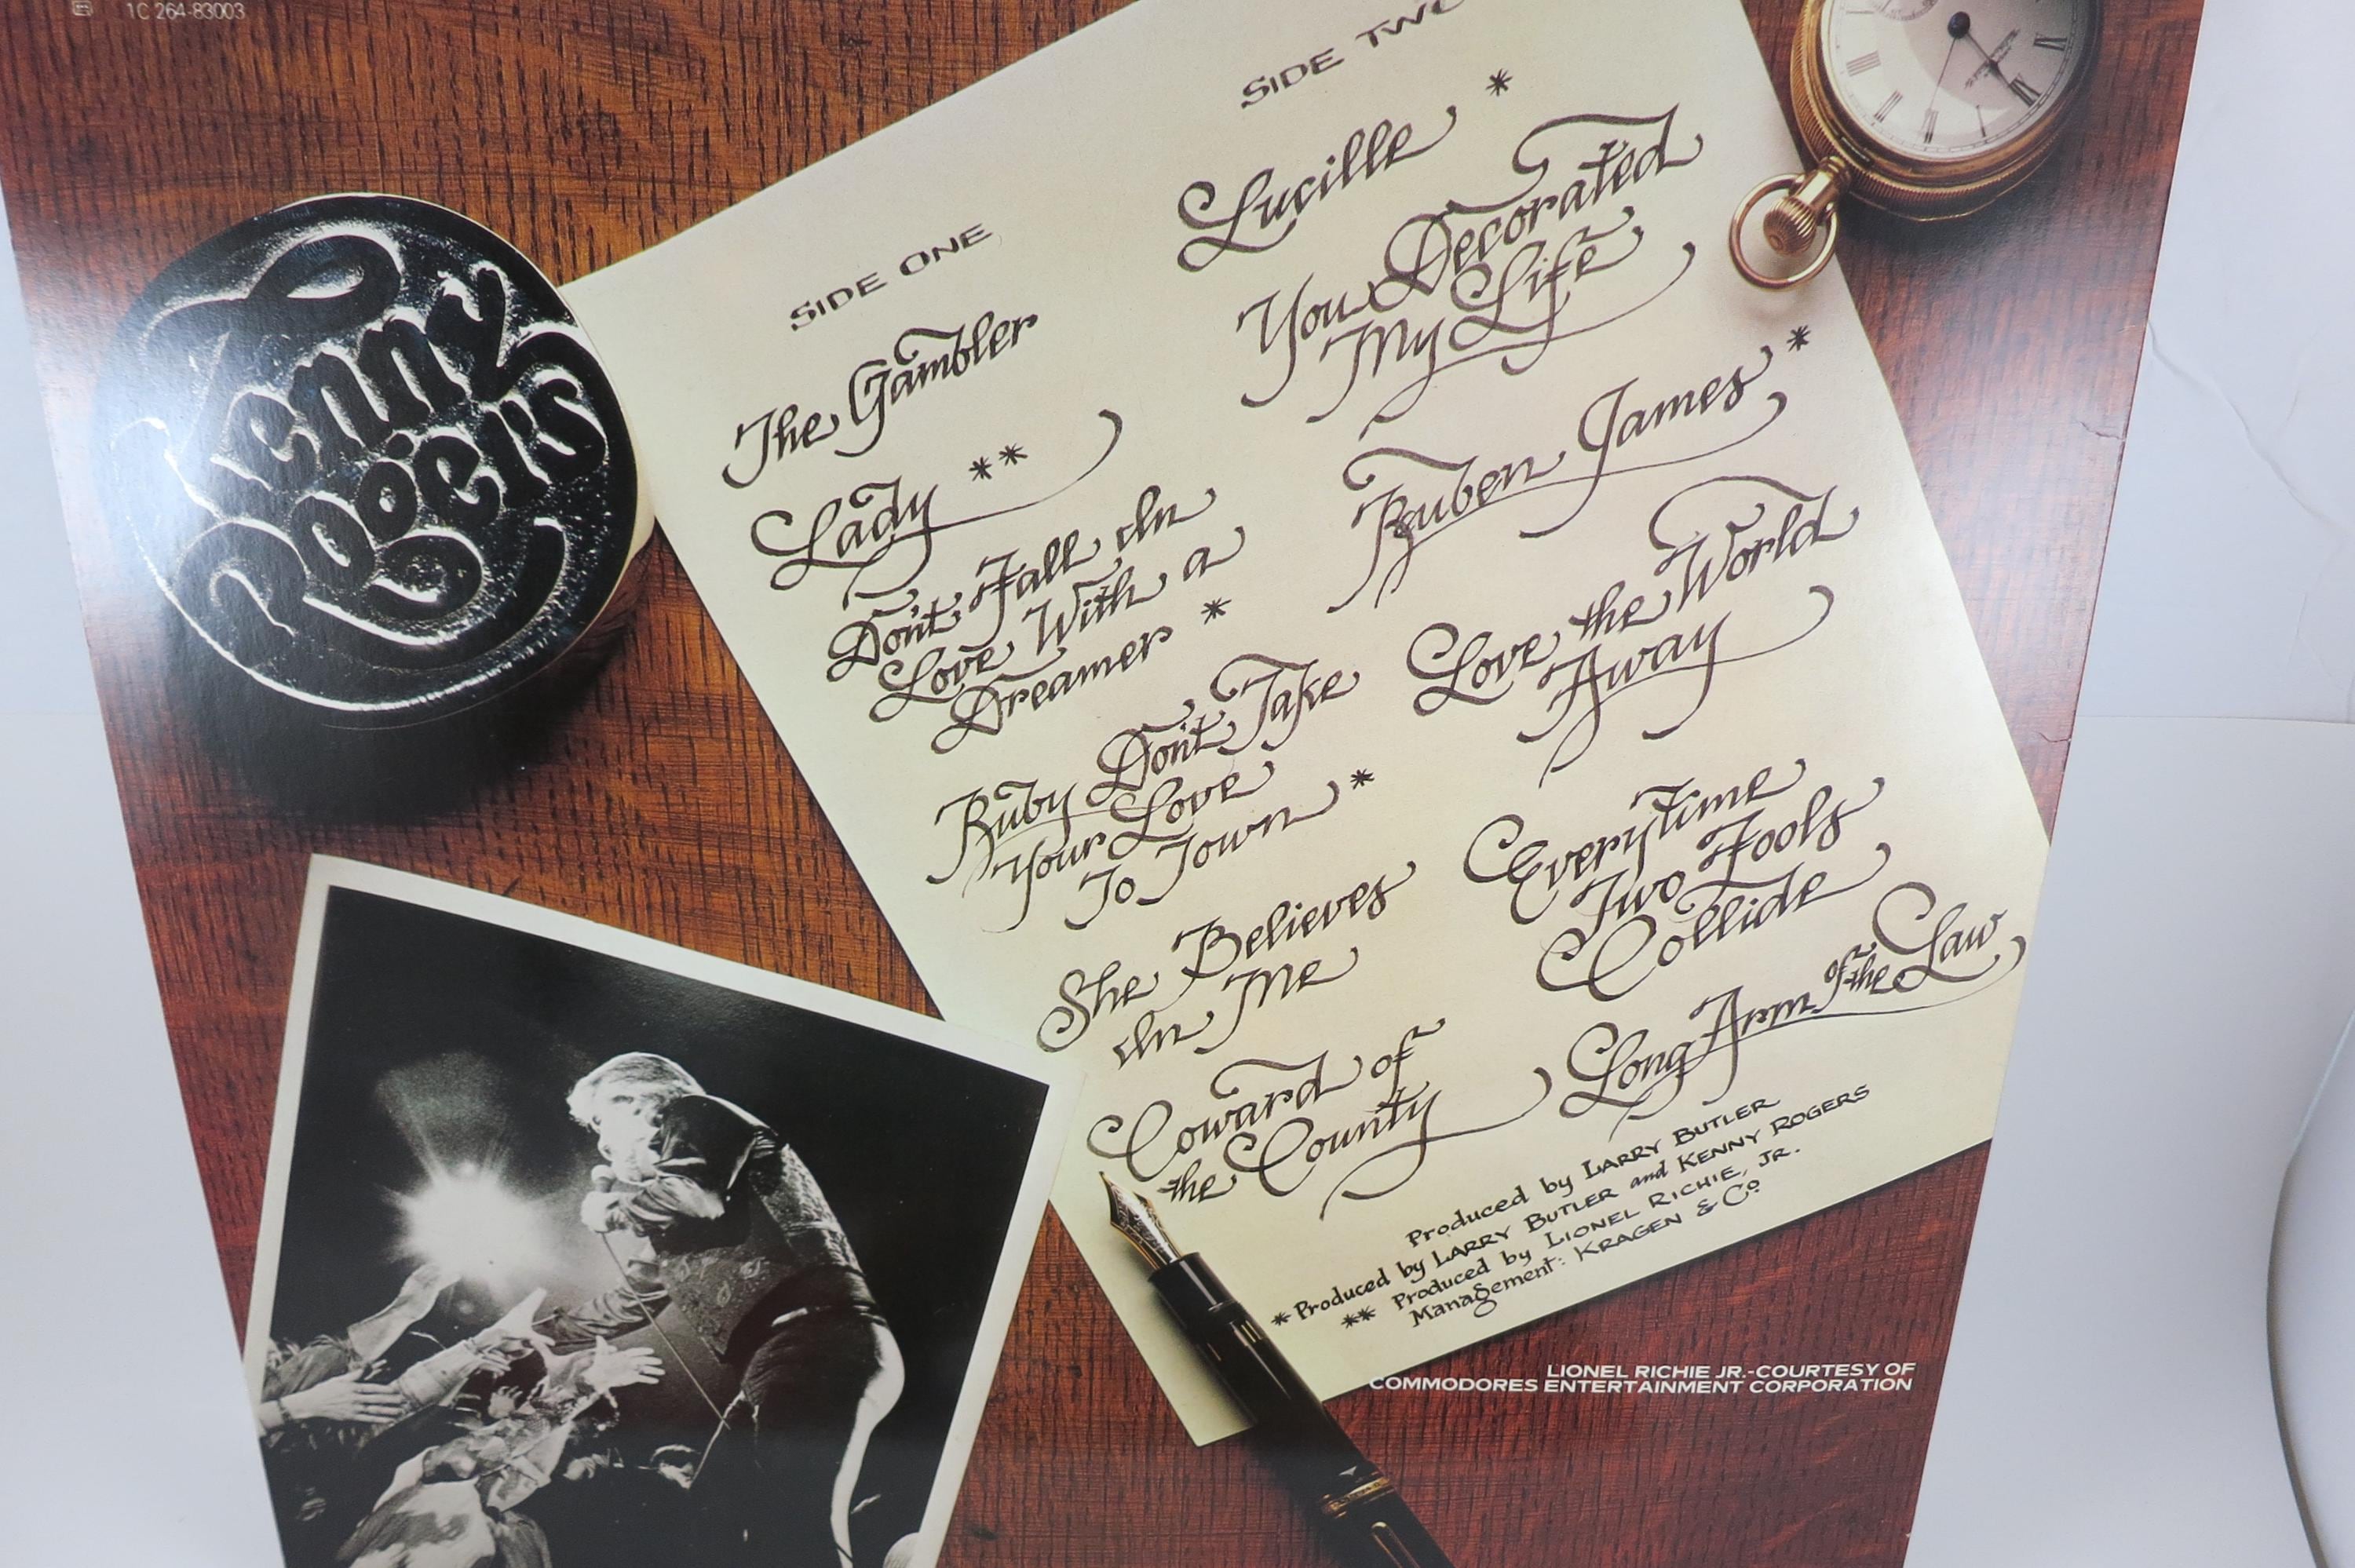 1C 264-83003
Kenny
Rogers
SIDE ONE
The Gambler
Lady **
Don't Fall In
Love With a
Dreamer *
Ruby Don't Take
Your Love
To Town *
She Believes
In Me
Coward of
the County
SIDE TWO
Lucille *
You Decorated
My Life
Ruben James *
Love the World
Away
Everytime
Two Fools
Collide
Long Arm of the Law
Produced by LARRY BUTLER
* Produced by LARRY BUTLER and KENNY ROGERS
** Produced by LIONEL RICHIE, JR.
Management: KRAGEN & Co
LIONEL RICHIE JR.-COURTESY OF
COMMODORES ENTERTAINMENT CORPORATION